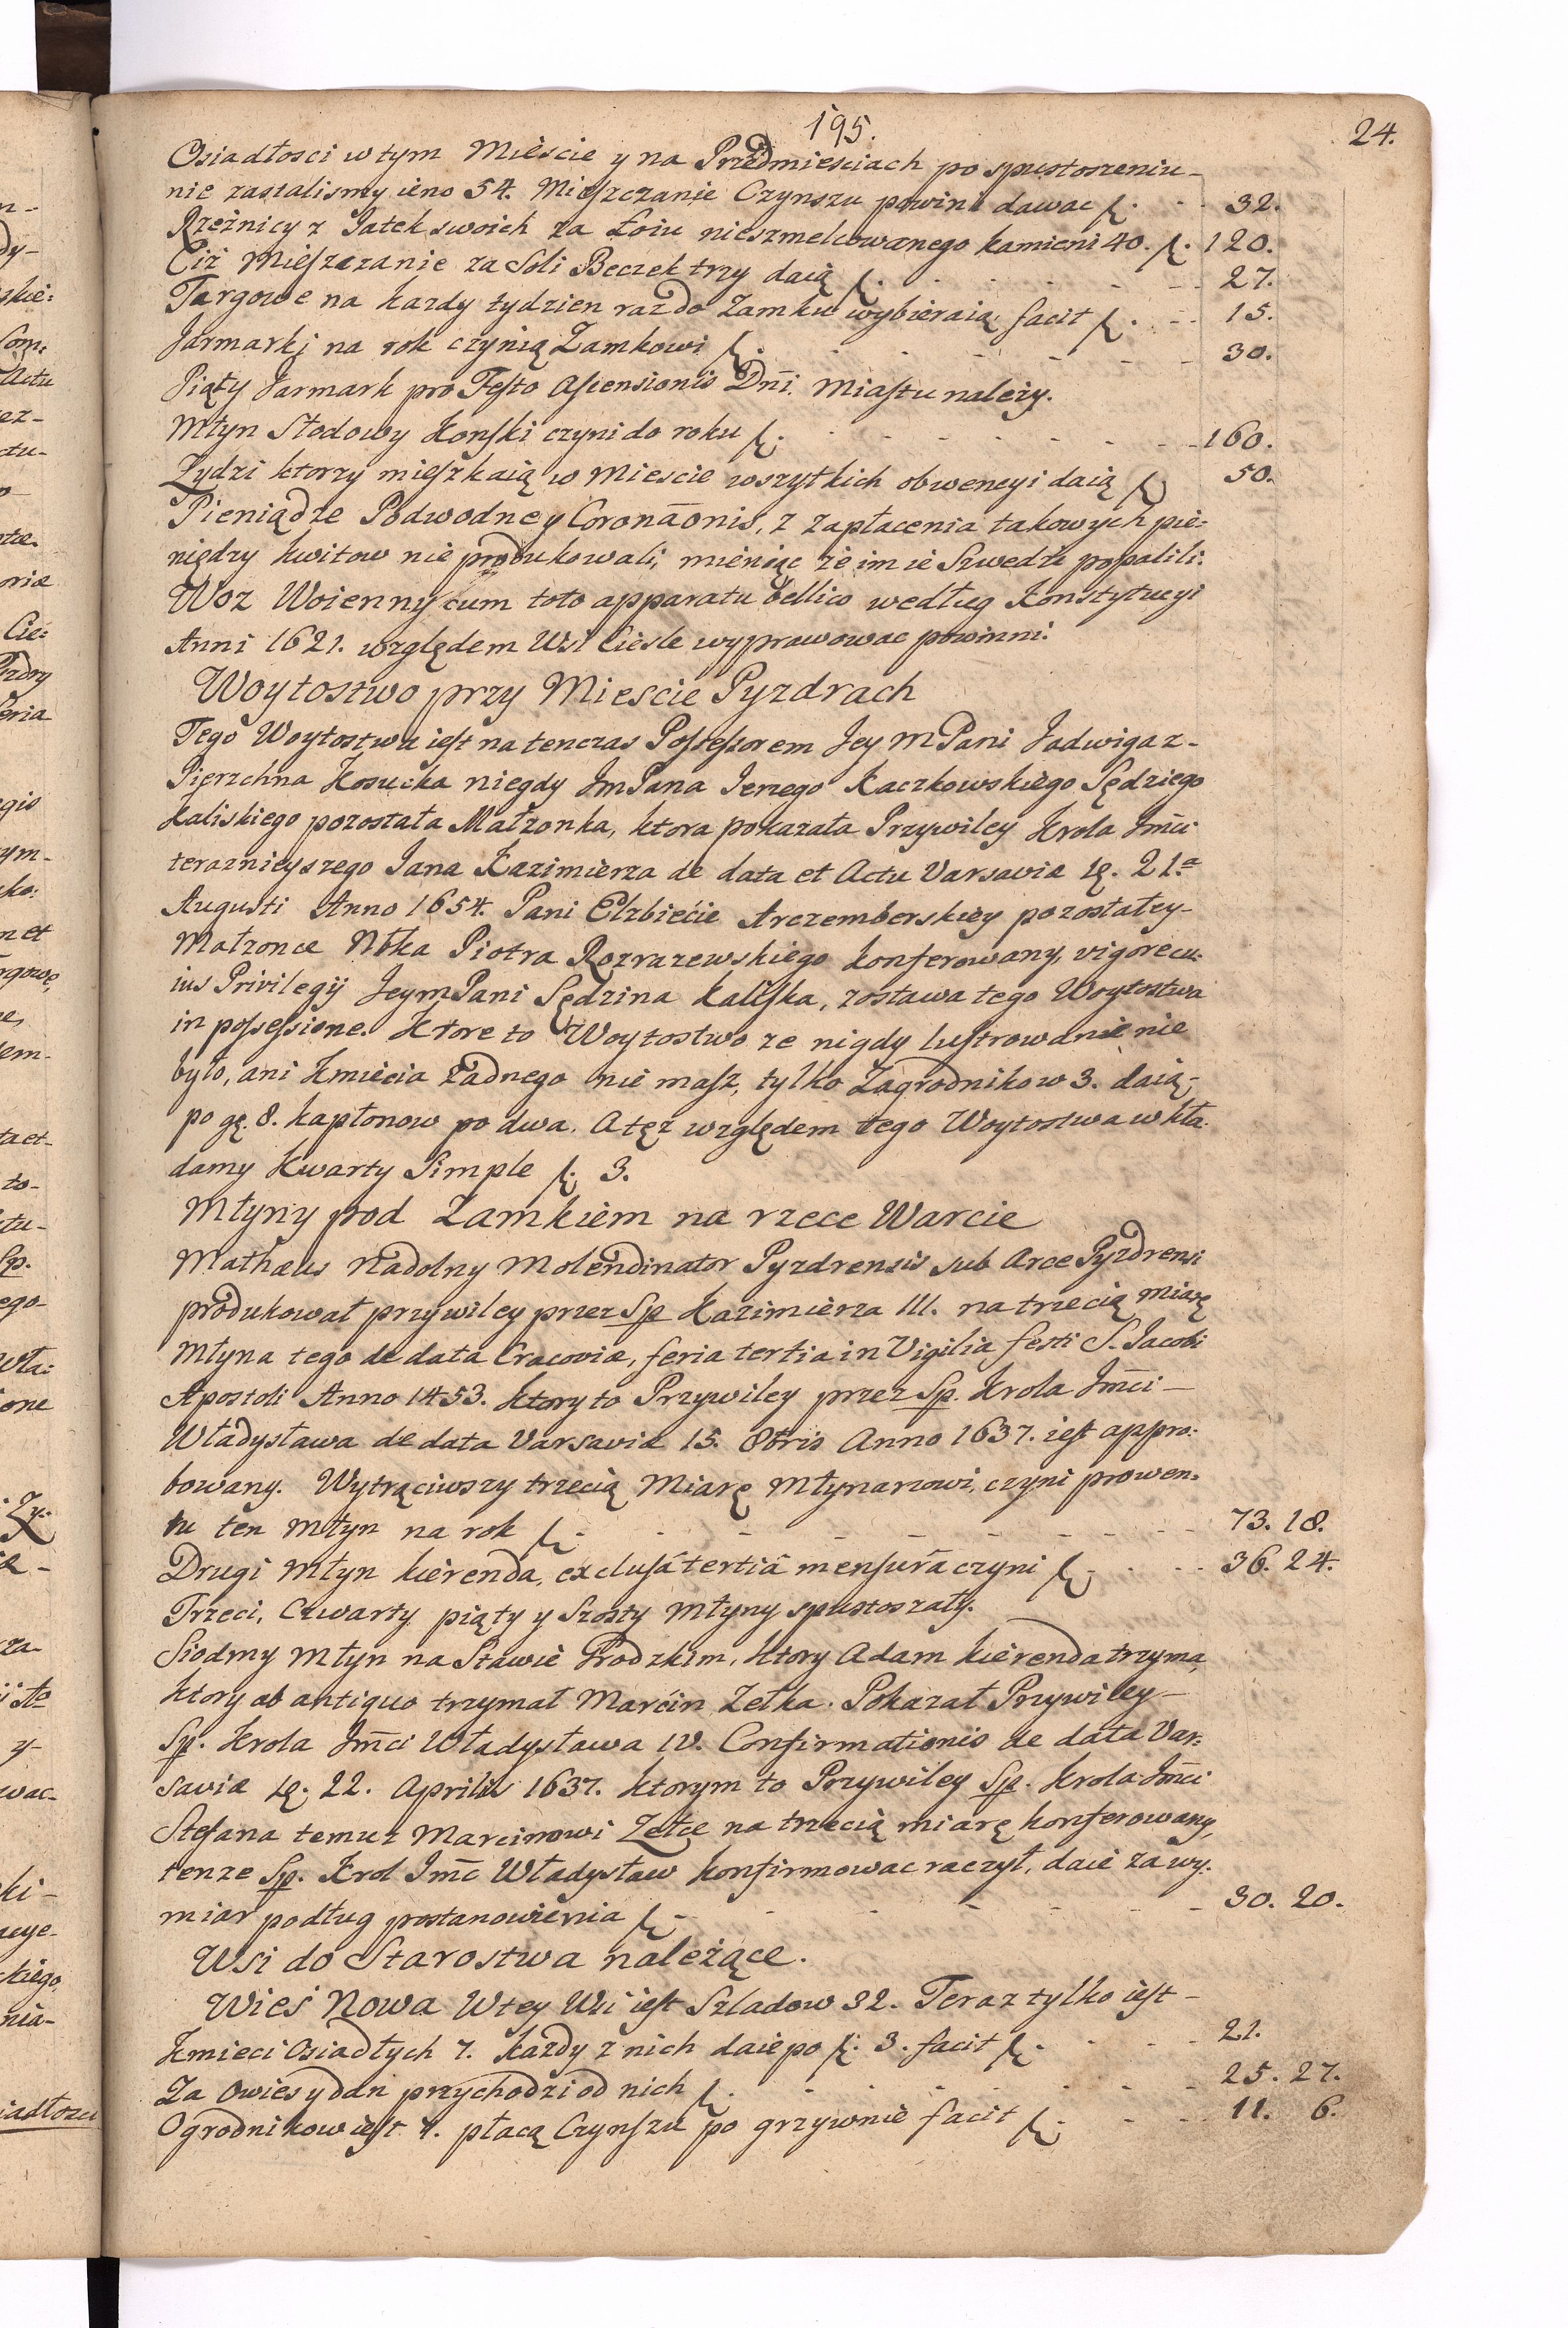 195.
24.
Osiadłosci w tym Mieście y na Przedmiesciach po spustoszeniu
nie zastalismy ieno 54. Mieszczanie Czynszu powini dawac f. 32.
Rzeźnicy z Jatek swoich za Łoiu nieszmelcowanego kamieni 40. f. 120.
Ciż Mieszczanie za Soli Beczek trzy daią f. 27.
Targowe na kazdy tydzien raz do Zamku wybieraią facit f. 15.
Jarmarki na rok czynią Zamkowi f. 30.
Piąty Jarmark pro Festo Ascensionis Dñi. Miastu należy.
Młyn Słodowy Konski czyni do roku f. 160.
Zydzi ktorzy mieszkaią w Miescie wszytkich obwencyi daią f. 50.
Pieniądze Podwodne y Coronãonis, z zapłacenia takowych pie:
niędzy kwitow nie produkowali, mieniąc że im ie Szwedzi popalili.
Woz Woienny cum toto apparatu bellico według Konstytucyi
Anni 1621. względem Wsi Ciesle wyprawowac powinni.
Woytostwo przy Miescie Pyzdrach
Tego Woytostwa iest na tenczas Possessorem Jey MPani Jadwiga z
Pierzchna Kosucka niegdy JmPana Jerzego Kaczkowskiego Sędziego
Kaliskiego pozostała Małzonka, ktora pokazała Przywiley Krola Jmci
teraznieyszego Jana Kazimierza de data et Actu Varsaviæ 21.ª
Augusti Anno 1654. Pani Elzbiećie Arczemberskiey pozostałey
Małzonce Piotra Rozrazewskiego konferowany, vigore cu:
ius Privilegij JeymPani Sędzina Kaliska, zostawa tego Woytostwa
in possessione. Ktore to Woytostwo ze nigdy lustrowanie nie
było, ani Kmiecia żadnego nie masz, tylko Zagrodnikow 3. daią
po gę. 8. kapłonow po dwa. A też względem tego Woytostwa wkła
damy Kwarty Simple f. 3.
Młyny pod Zamkiem na rzece Warcie
Mathæus Nadolny Molendinator Pyzdrensis sub Arce Pyzdrensi
produkował przywiley przez Sp Kazimierza III. na trzecią miarę
Młyna tego de data Cracoviæ, feria tertia in Vigilia festi S. Jacobi
Apostoli Anno 1453. Ktory to Przywiley przez Sp. Krola Jmci
Władysława de data Varsaviæ 15. 8bris Anno 1637. iest appro:
bowany. Wytrąciwszy trzecią Miarę Młynarzowi, czyni prowen:
tu ten Młyn na rok f. 73. 18.
Drugi Młyn kierenda, exclusâ tertiâ mensurâ czyni f. 36. 24.
Trzeci, Czwarty piąty y Szosty Młyny spustoszały.
Siodmy Młyn na Stawie Prodzkim, ktory Adam kierenda trzyma,
ktory ab antiquo trzymał Marćin Zełka. Pokazał Przywiley
Sp. Krola Jmci Władysława IV. Confirmationis de data Var:
saviæ 22. Aprilis 1637. Ktorym to Przywiley Sp. Krola Jmci
Stefana temuz Marcinowi Zełce na trzecią miarę konferowany,
tenze Sp. Krol Jmc Władysław konfirmowac raczył, daie za wy:
miar podług postanowienia f. 30. 20.
Wsi do Starostwa należące.
Wieś Nowa W tey Wsi iest Szladow 32. Teraz tylko iest
Kmieci Osiadłych 7. każdy z nich daie po f. 3. facit f. 21.
Za Owies y dan przychodzi od nich f. 25. 27.
Ogrodnikow iest 7. płacą Czynszu po grzywnie facit f. 11. 6.